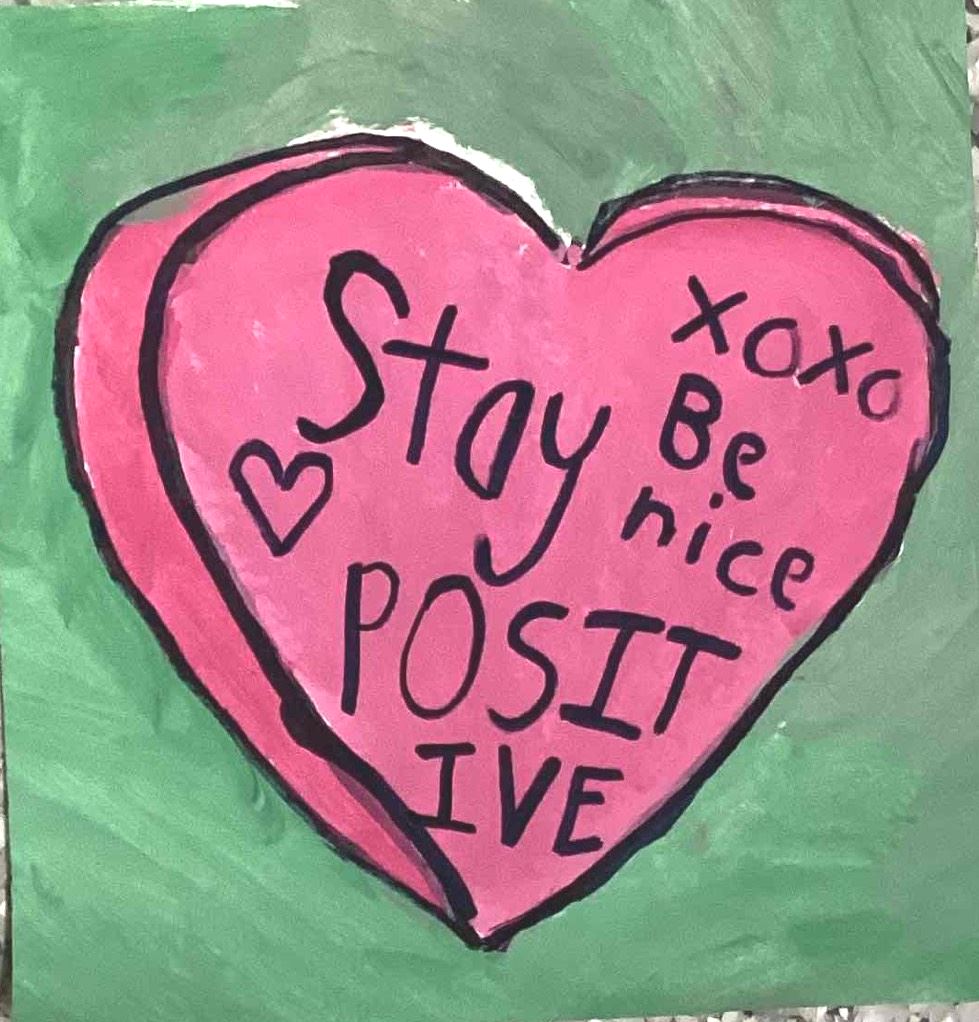 Stay
POSIT
IVE
xoxo
Be
nice